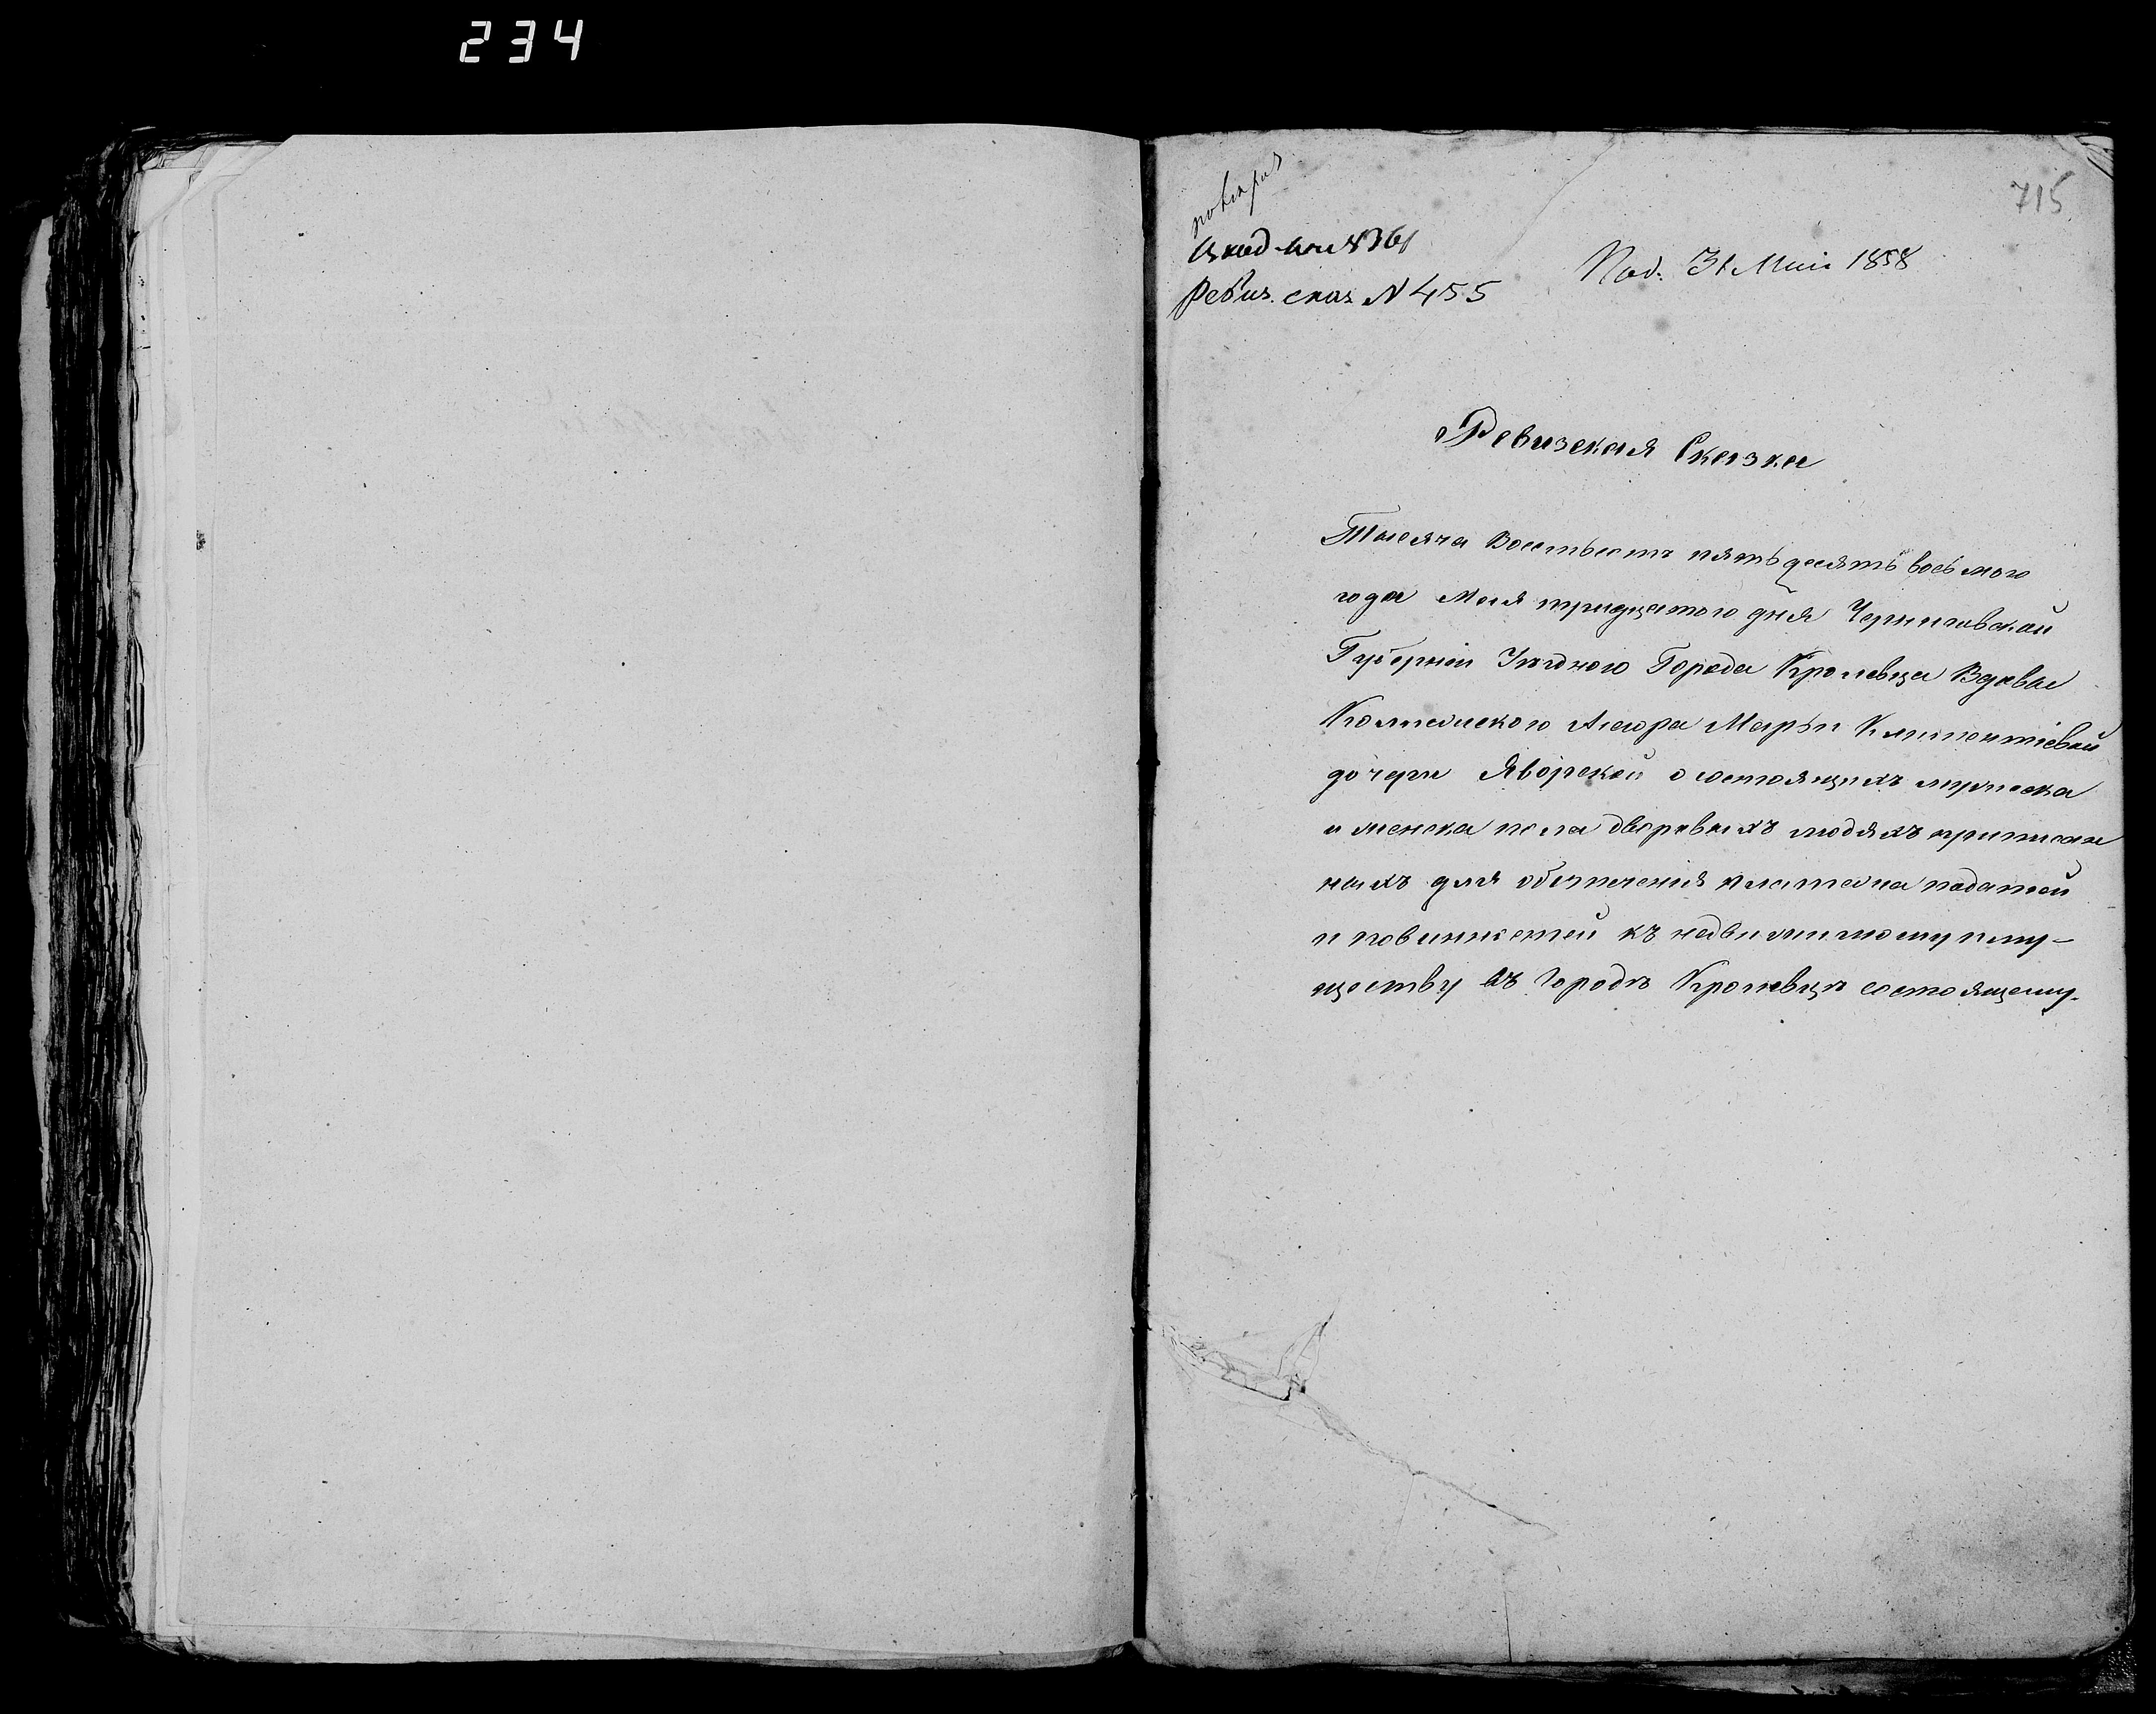 234
715
повѣрив
Исход. № 361
Ревиз. сказ. N 455
Под. 31 Маія 1858
Ревизская Сказка
Тысяча Восемьсотъ пятьдесятъ восьмого
года Мая тридцатого дня Черниговской
Губерніи Уѣздного Города Кролевца Вдовы
Колежского Асесора Марьи Климентіевой
дочери Яворской о состоящихъ мужеска
и женска пола дворовыхъ людяхъ приписан
ныхъ для обезпеченія платежа податей
и повинностей къ недвижимому иму-
ществу въ Городѣ Кролевцѣ состоящему.